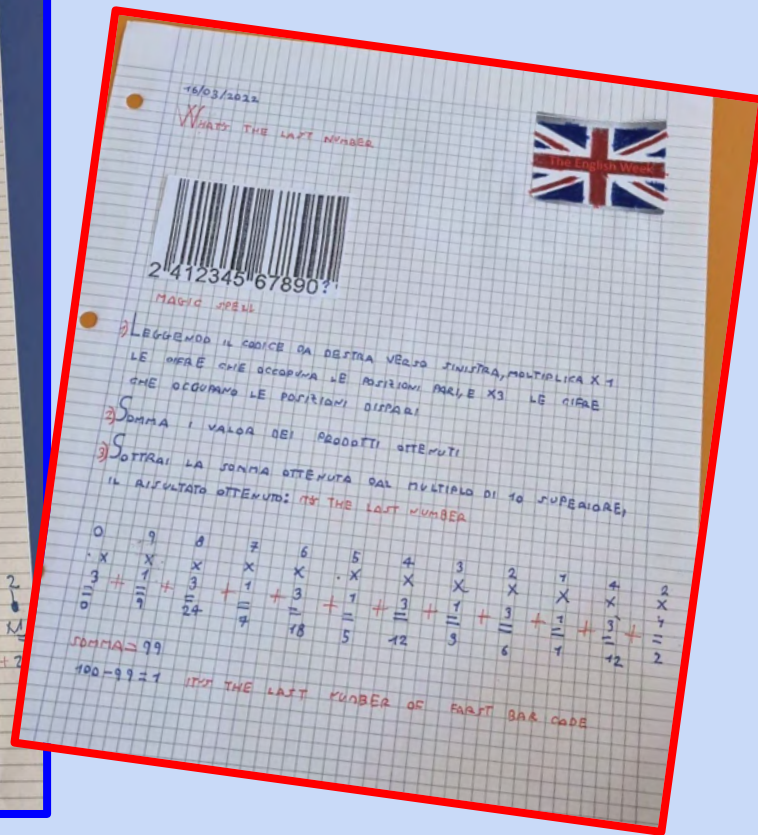 16/03/2022
WHAT'S THE LAST NUMBER
The English Week
2 412345 67890?
MAGIC SPELL
1) LEGGENDO IL CODICE DA DESTRA VERSO SINISTRA, MOLTIPLICA X 1
LE CIFRE CHE OCCOPUNA LE POSIZIONI PARI, E X3 LE CIFRE
CHE OCCUPANO LE POSIZIONI DISPARI
2) SOMMA I VALOR DEI PRODOTTI OTTENUTI
3) SOTTRAI LA SOMMA OTTENUTA DAL MULTIPLO DI 10 SUPERIORE,
IL RISULTATO OTTENUTO: IT'S THE LAST NUMBER
0 9 8 7 6 5 4 3 2 1 4 2
x x x x x x x x x x x x
3 + 1 + 3 + 1 + 3 + 1 + 3 + 1 + 3 + 1 + 3 + 1
= = = = = = = = = = = =
0 9 24 7 18 5 12 3 6 1 12 2
SOMMA= 99
100-99=1 IT'S THE LAST NUMBER OF FARST BAR CODE
2
M
+2